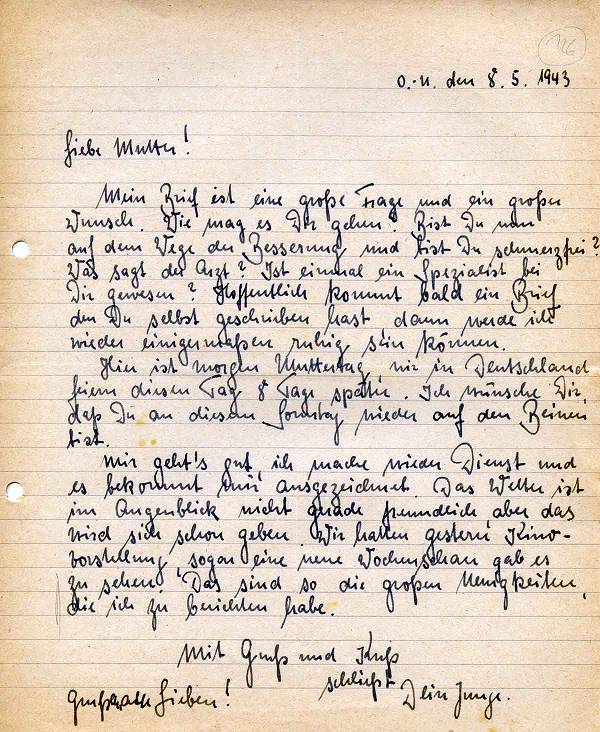 116
O.-U. den 8. 5. 1943
Liebe Mutter!
Mein Brief ist eine große Frage und ein großer
Wunsch. Wie mag es Dir gehen? Bist Du nun
auf dem Wege der Besserung und bist Du schmerzfrei?
Was sagt der Arzt? Ist einmal ein Spezialist bei
Dir gewesen? Hoffentlich kommt bald ein Brief
den Du selbst geschrieben hast, dann werde ich
wieder einigermaßen ruhig sein können.
Hier ist morgen Muttertag, wir in Deutschland
feiern diesen Tag 8 Tage später. Ich wünsche Dir,
daß Du an diesem Sonntag wieder auf den Beinen
bist.
Mir geht's gut, ich mache wieder Dienst und
es bekommt mir ausgezeichnet. Das Wetter ist
im Augenblick nicht gerade freundlich aber das
wird sich schon geben. Wir hatten gestern Kino-
vorstellung, sogar eine neue Wochenschau gab es
zu sehen. Das sind so die großen Neuigkeiten,
die ich zu berichten habe.
Mit Gruß und Kuß
schließt Dein Junge.
Gruß alle Lieben!